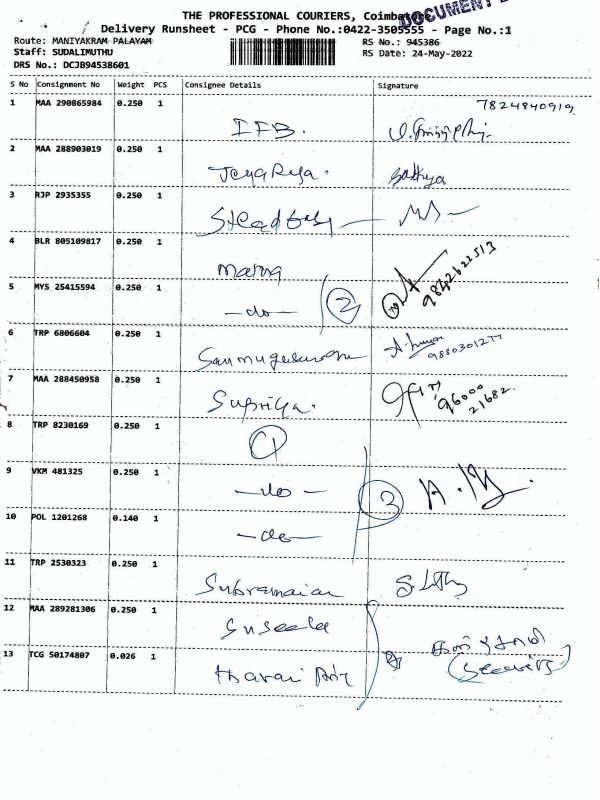 THE PROFESSIONAL COURIERS, Coimbatore
DOCUMENT
Delivery Runsheet - PCG - Phone No.:0422-3505555 - Page No.:1
Route: MANIYAKRAM PALAYAM RS No.: 945386
Staff: SUDALIMUTHU RS Date: 24-May-2022
DRS No.: DCJB94538601
S No Consignment No Weight PCS Consignee Details Signature
1 MAA 290865984 0.250 1 IFB. 7824840919
2 MAA 288903019 0.250 1 Jeya Priya. Sathya
3 RJP 2935355 0.250 1
4 BLR 805109817 0.250 1 9842622513
5 MYS 25415594 0.250 1 -do- 2
6 TRP 6806604 0.250 1 9880301277
7 MAA 288450958 0.250 1 Supriya. 96000 21682
8 TRP 8230169 0.250 1
9 VKM 481325 0.250 1 -do- 3
10 POL 1201268 0.140 1 -do-
11 TRP 2530323 0.250 1 Subramaian
12 MAA 289281306 0.250 1 Suseela
13 TCG 50174807 0.026 1